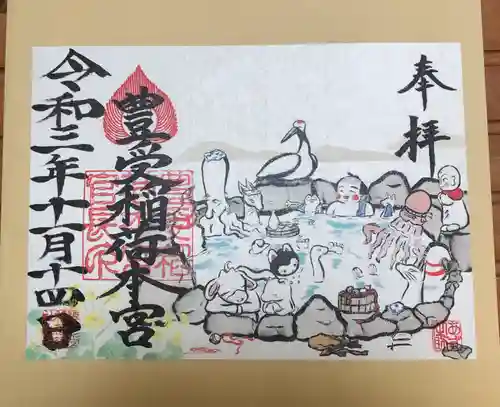 奉拝
豊受稲荷本宮
令和二年十一月十四日